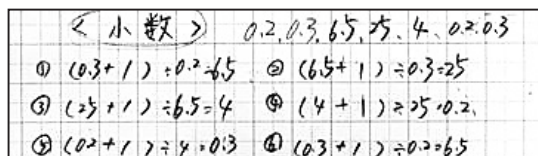 ＜小数＞ 0.2, 0.3, 6.5, 25, 4, 0.2, 0.3
① (0.3+1)÷0.2=6.5 ② (6.5+1)÷0.3=25
③ (25+1)÷6.5=4 ④ (4+1)÷25=0.2
⑤ (0.2+1)÷4=0.3 ⑥ (0.3+1)÷0.2=6.5